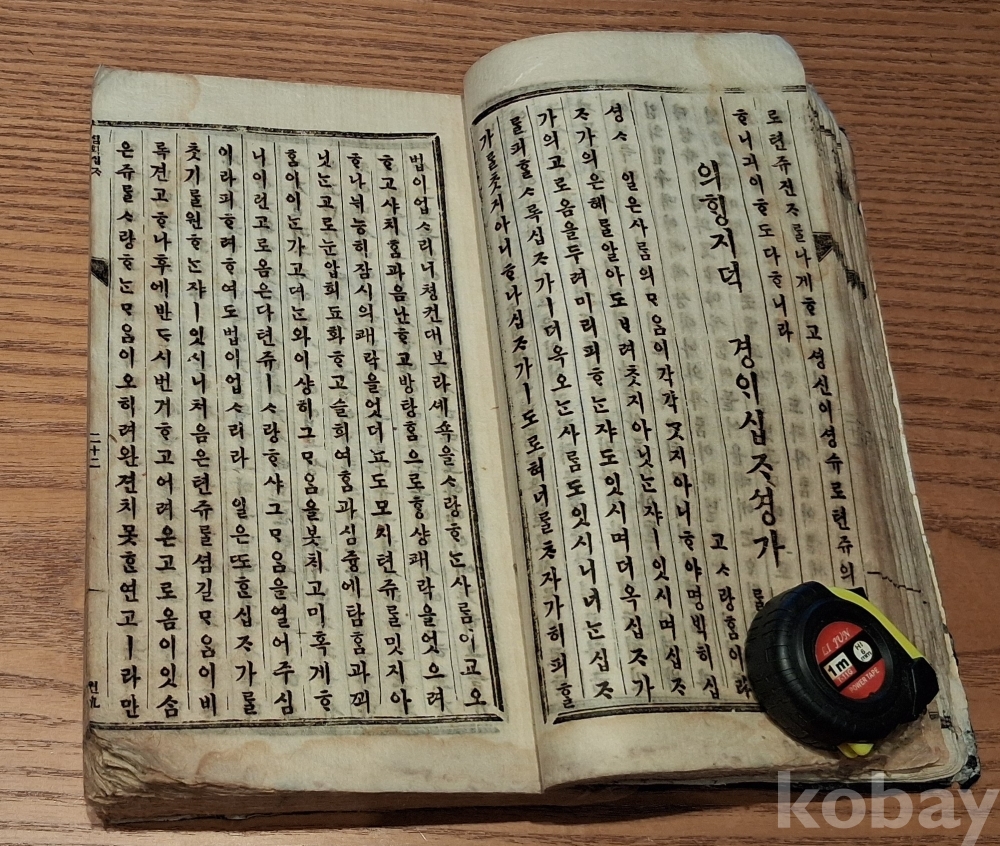 로텬쥬젼ᄌᆞᄅᆞᆯ나게ᄒᆞ고셩신이셩슈로텬쥬의
ᄒᆞ니긔이ᄒᆞ도다ᄒᆞ니라
의ᄒᆡᆼ지덕 경이십ᄌᆞ셩가 ᄅᆞᆯ
고ᄉᆞ랑홈이라
셩ᄉᆞ 일은사ᄅᆞᆷ의ᄆᆞ음이각각ᄀᆞᆺ지아니ᄒᆞ야명ᄇᆡᆨ히십
ᄌᆞ가의은혜ᄅᆞᆯ알아도ᄇᆞ려ᄎᆞᆺ지아닛ᄂᆞᆫ쟈ㅣ잇시며십ᄌᆞ
가의고로옴을두려미리피ᄒᆞᄂᆞᆫ쟈도잇시며더옥십ᄌᆞ가
ᄅᆞᆯ피ᄒᆞᆯᄉᆞ록십ᄌᆞ가ㅣ더옥오ᄂᆞᆫ사ᄅᆞᆷ도잇시니너ᄂᆞᆫ십ᄌᆞ
가ᄅᆞᆯᄎᆞᆺ지아니ᄒᆞ나십ᄌᆞ가ㅣ도로혀너ᄅᆞᆯᄎᆞ자가히피ᄒᆞᆯ
법이업ᄉᆞ리니쳥컨대보라셰쇽을ᄉᆞ랑ᄒᆞᄂᆞᆫ사ᄅᆞᆷ이교오
ᄒᆞ고샤치홈과음난ᄒᆞ고방탕홈으로ᄒᆞᆼ샹쾌락을엇으려
ᄒᆞ나뉘능히잠시의쾌락을엇더뇨도모지텬쥬ᄅᆞᆯ밋지아
닛ᄂᆞᆫ고로눈압희됴화ᄒᆞ고슬희여홈과심즁에탐홈과ᄭᅬ
홈이이ᄂᆞᆫ가고뎌ᄂᆞᆫ와이샹히그ᄆᆞ음을붓치고미혹게ᄒᆞ
니이런고로옴은다텬쥬ㅣᄉᆞ랑ᄒᆞ샤그ᄆᆞ음을열어주심
이라피ᄒᆞ려ᄒᆞ여도법이업ᄉᆞ리라 일은ᄯᅩᄒᆞᆫ십ᄌᆞ가ᄅᆞᆯ
ᄎᆞᆺ기ᄅᆞᆯ원ᄒᆞᄂᆞᆫ쟈ㅣ잇시니처음은텬쥬ᄅᆞᆯ셤길ᄆᆞ음이비
록견고ᄒᆞ나후에반ᄃᆞ시번거ᄒᆞ고어려온고로옴이잇ᄉᆞᆷ
은쥬ᄅᆞᆯᄉᆞ랑ᄒᆞᄂᆞᆫᄆᆞ음이오히려완젼치못ᄒᆞᆫ연고ㅣ라만
二十二
LI JUN
1m
POWER TAPE
kobay